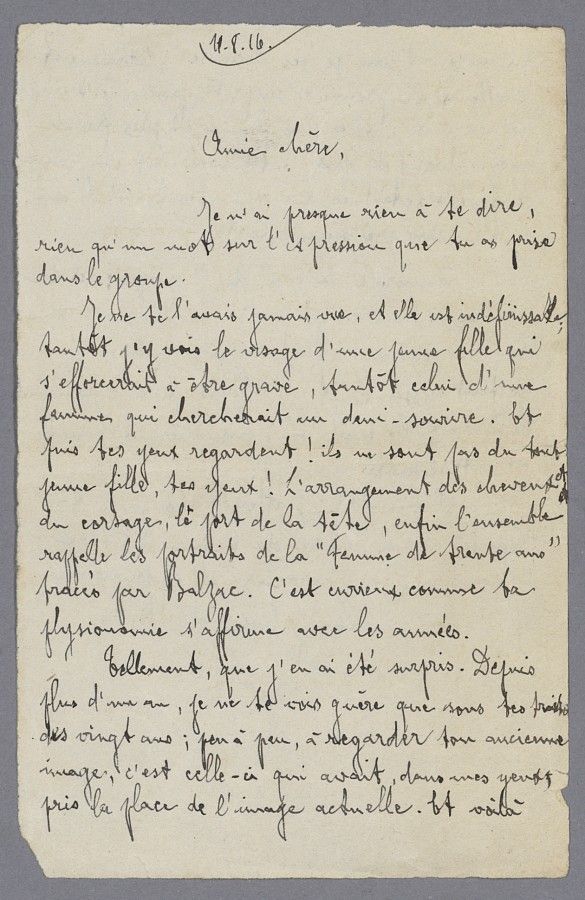 11.8.16.
Amie chère,
Je n'ai presque rien à te dire,
rien qu'un mot sur l'expression que tu as prise
dans le groupe.
Je ne te l'avais jamais vue, et elle est indéfinissable,
tantôt j'y vois le visage d'une jeune fille qui
s'efforcerait à être grave, tantôt celui d'une
femme qui chercherait un demi-sourire. Et
puis tes yeux regardent ! ils ne sont pas du tout
jeune fille, tes yeux ! L'arrangement des cheveux et
du corsage, le port de la tête, enfin l'ensemble
rappelle les portraits de la "Femme de trente ans"
tracés par Balzac. C'est curieux comme ta
physionomie s'affirme avec les années.
Tellement, que j'en ai été surpris. Depuis
plus d'un an, je ne te vois guère que sous tes traits
des vingt ans ; peu à peu, à regarder ton ancienne
image, c'est celle-ci qui avait, dans mes yeux,
pris la place de l'image actuelle. Et voilà